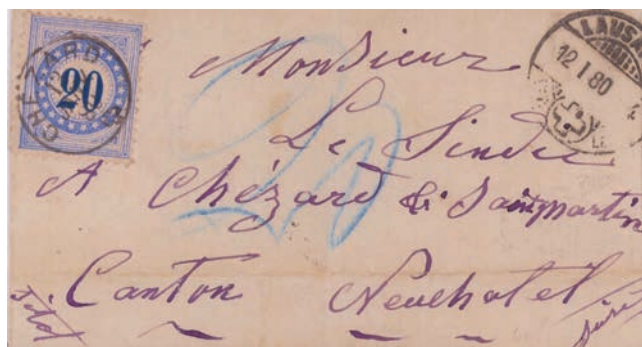 CHÉZARD
20
LAUS
12.I.80
20
Monsieur
Le Sindic
A Chézard & Saintmartin
Canton Neuchatel